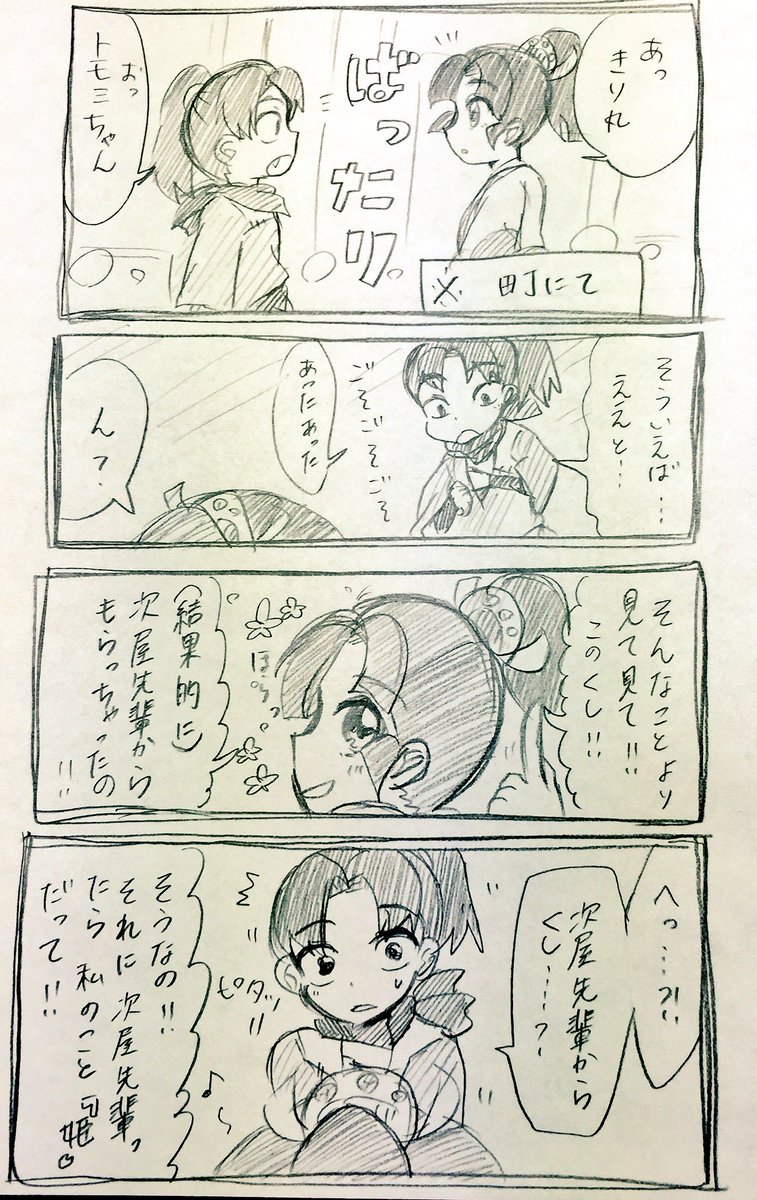 あっ
きり丸
ばったり
おっ
トモミちゃん
※町にて
そういえば…
ええと…
ごそごそごそ
あったあった
ん？
そんなことより
見て見て!!
このくし!!
ぽっ
(結果的に)
次屋先輩から
もらっちゃったの
!!
へっ…?!
次屋先輩から
くし…?
ピタッ
そうなの!!
それに次屋先輩っ
たら私のこと『姫』
だって!!